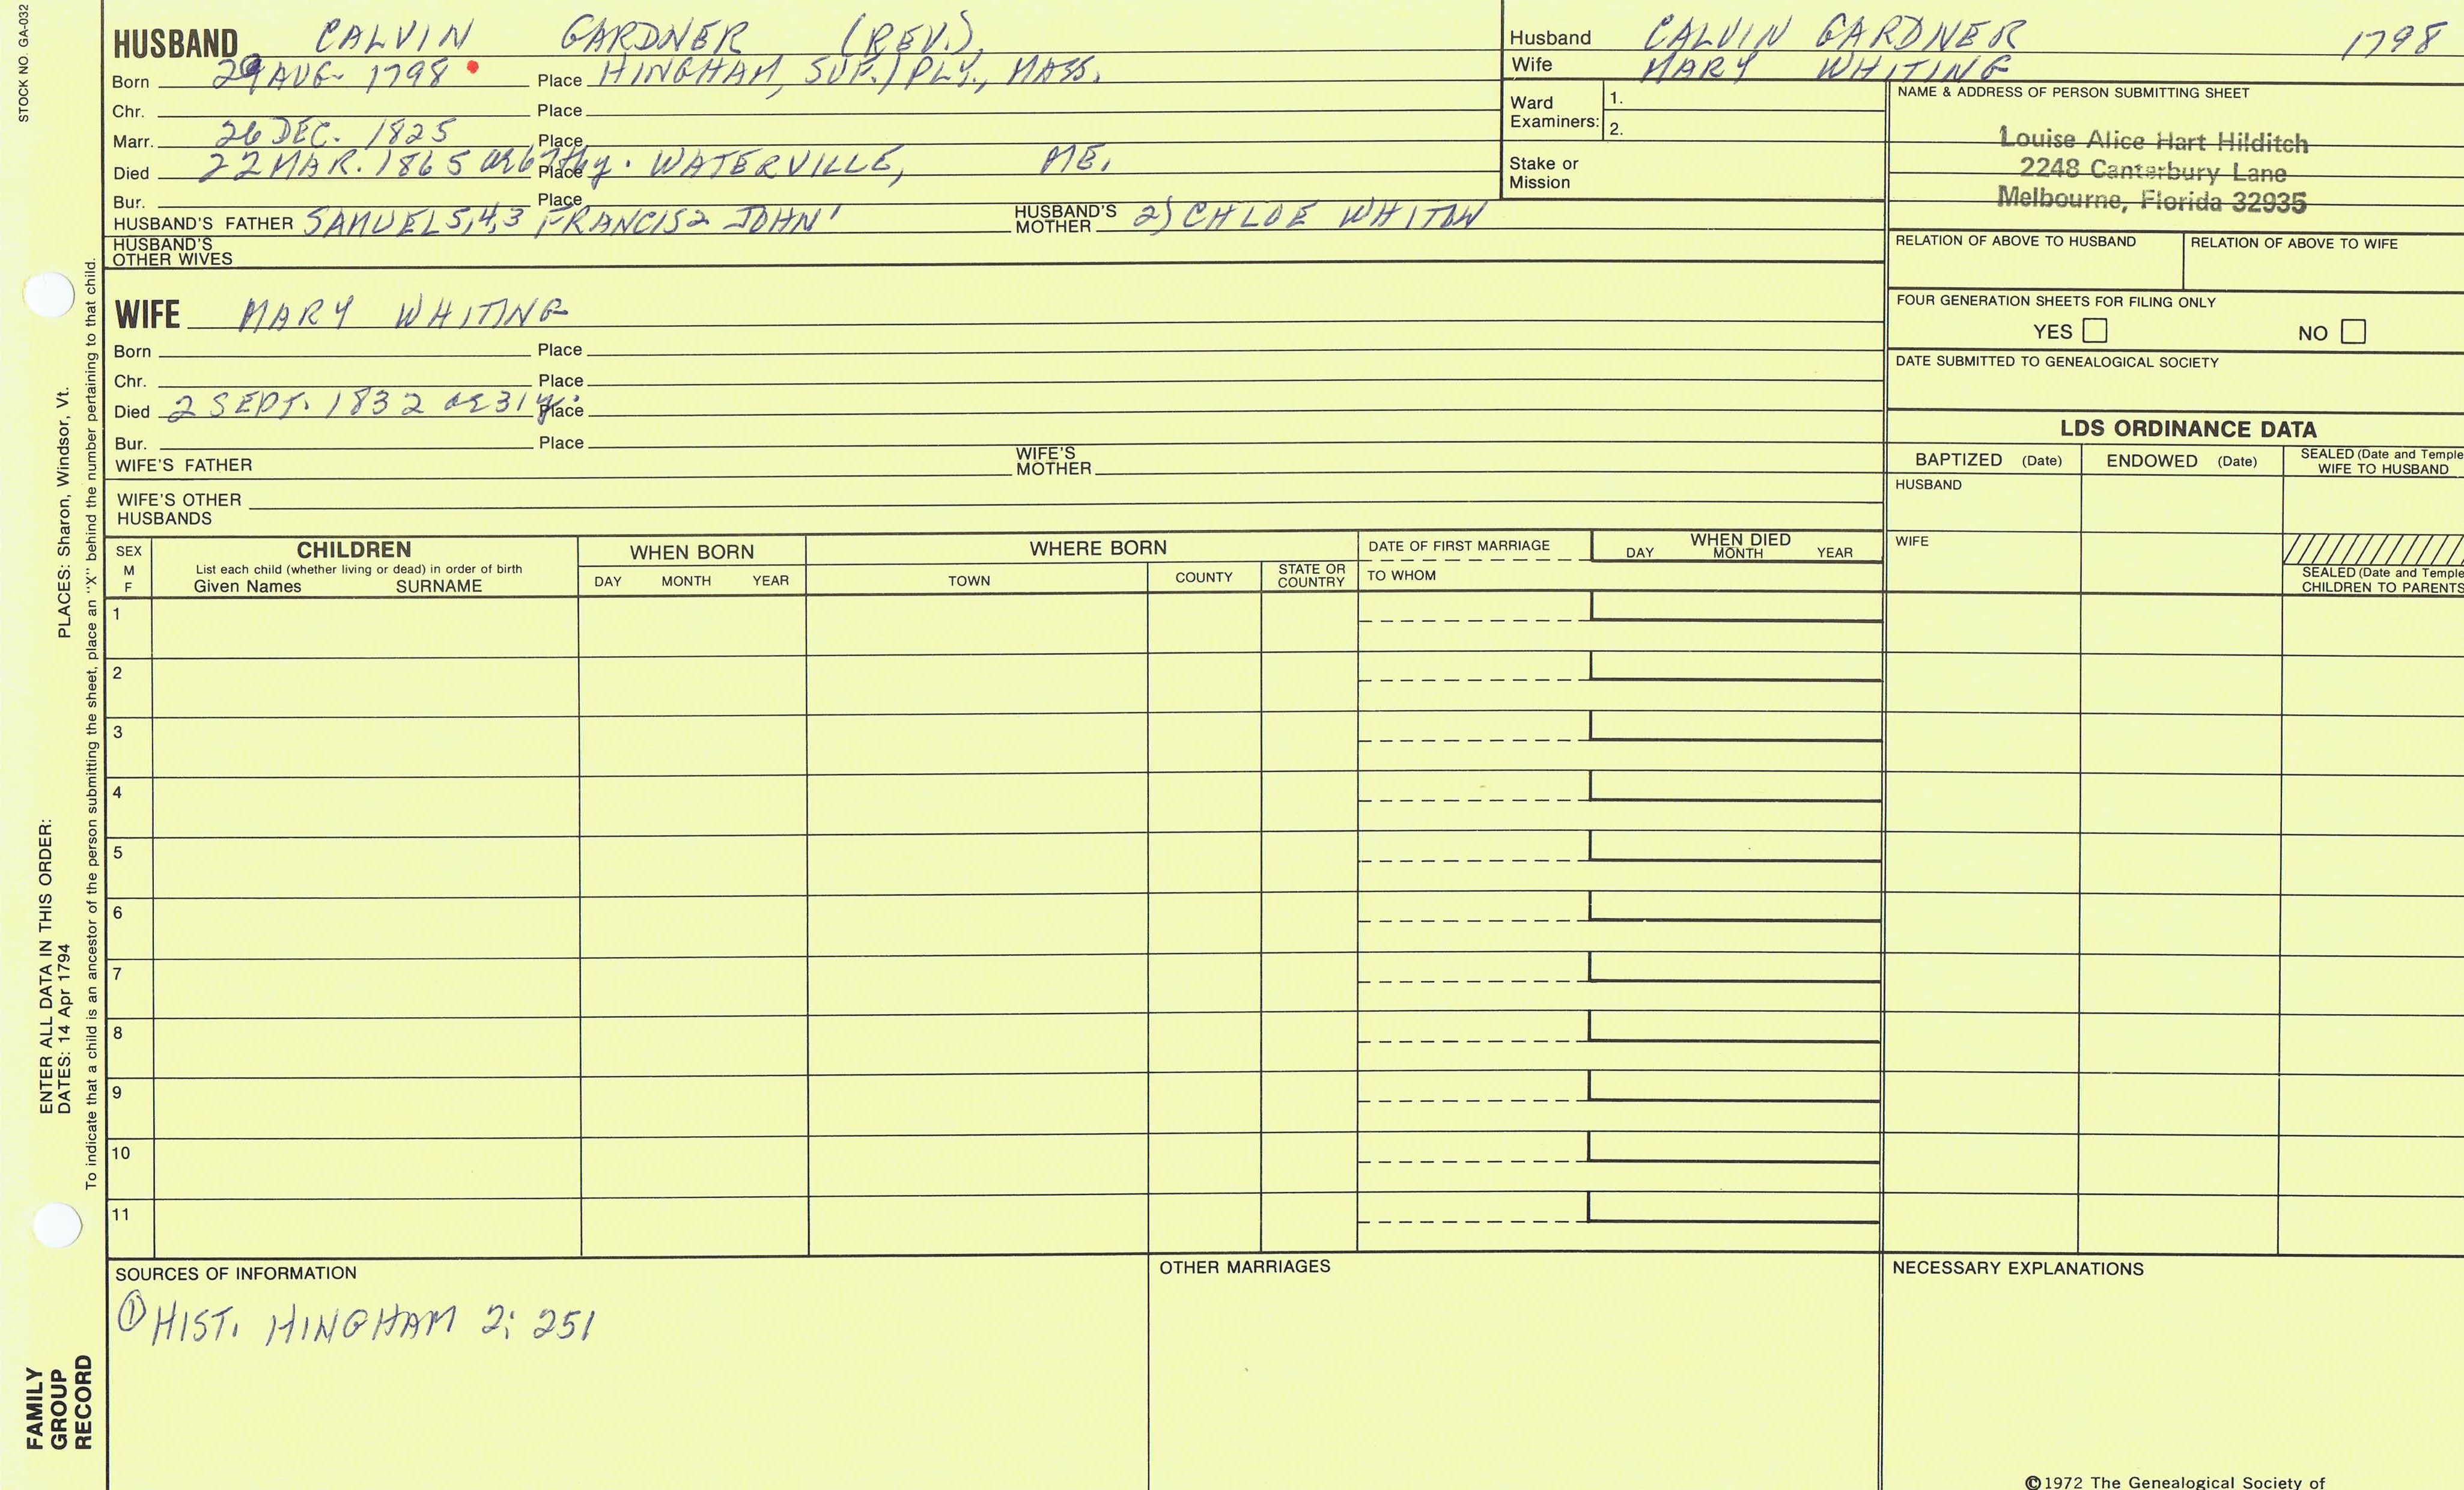 STOCK NO. GA-032
HUSBAND CALVIN GARDNER (REV.),
Born 29 AUG. 1798 Place HINGHAM, SUF./PLY., MASS.
Chr. Place
Marr. 26 DEC. 1825 Place
Died 22 MAR. 1865 ae 67y. Place WATERVILLE, ME.
Bur. Place
HUSBAND'S FATHER SAMUEL 5,4,3 FRANCIS 2 JOHN 1 HUSBAND'S MOTHER 2) CHLOE WHITON
HUSBAND'S OTHER WIVES
WIFE MARY WHITING
Born Place
Chr. Place
Died 2 SEPT. 1832 ae 31 y. Place
Bur. Place
WIFE'S FATHER WIFE'S MOTHER
WIFE'S OTHER HUSBANDS
Husband CALVIN GARDNER 1798
Wife MARY WHITING
Ward Examiners: 1.
2.
Stake or Mission
NAME & ADDRESS OF PERSON SUBMITTING SHEET
Louise Alice Hart Hilditch
2248 Canterbury Lane
Melbourne, Florida 32935
RELATION OF ABOVE TO HUSBAND RELATION OF ABOVE TO WIFE
FOUR GENERATION SHEETS FOR FILING ONLY
YES NO
DATE SUBMITTED TO GENEALOGICAL SOCIETY
LDS ORDINANCE DATA
BAPTIZED (Date) ENDOWED (Date) SEALED (Date and Temple
WIFE TO HUSBAND
HUSBAND
WIFE
SEALED (Date and Temple
CHILDREN TO PARENTS
SEX
M
F
CHILDREN
List each child (whether living or dead) in order of birth
Given Names SURNAME
WHEN BORN
DAY MONTH YEAR
WHERE BORN
TOWN COUNTY STATE OR COUNTRY
DATE OF FIRST MARRIAGE
TO WHOM
WHEN DIED
DAY MONTH YEAR
1
2
3
4
5
6
7
8
9
10
11
SOURCES OF INFORMATION
① HIST. HINGHAM 2: 251
OTHER MARRIAGES
NECESSARY EXPLANATIONS
©1972 The Genealogical Society of
PLACES: Sharon, Windsor, Vt.
ENTER ALL DATA IN THIS ORDER:
DATES: 14 Apr 1794
To indicate that a child is an ancestor of the person submitting the sheet, place an "X" behind the number pertaining to that child.
FAMILY
GROUP
RECORD